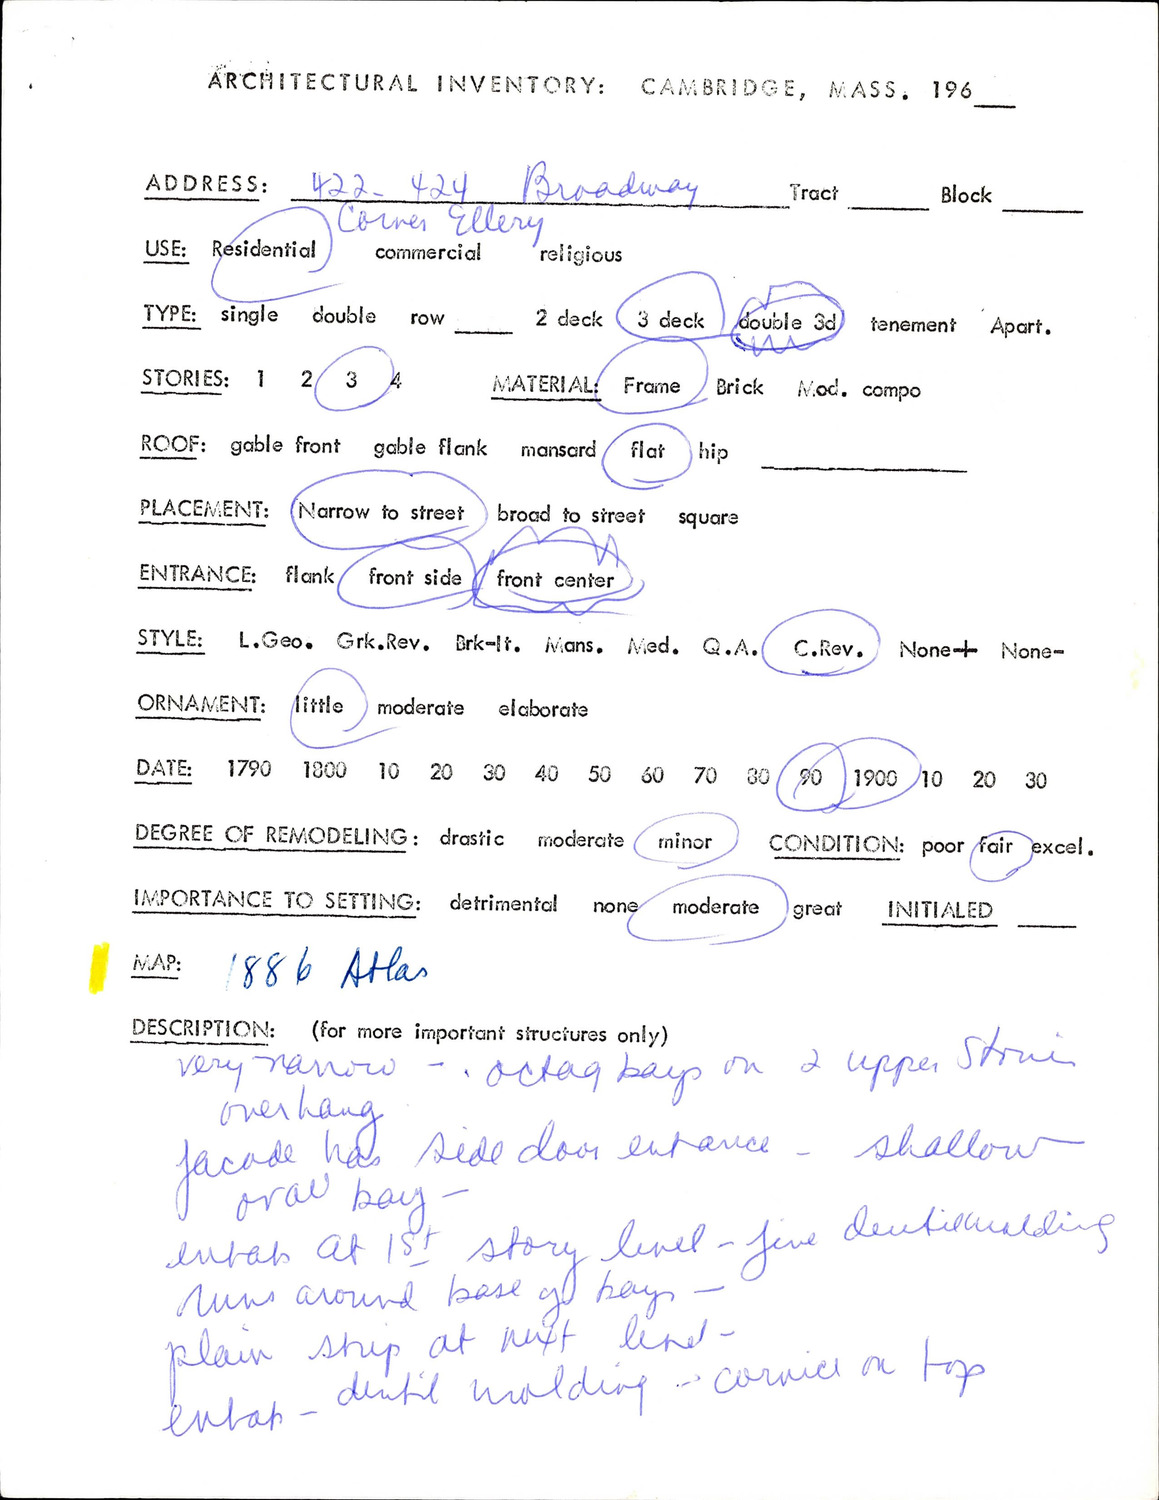 ARCHITECTURAL INVENTORY: CAMBRIDGE, MASS. 196__
ADDRESS: 422-424 Broadway Tract ____ Block ____
Corner Ellery
USE: Residential commercial religious
TYPE: single double row ____ 2 deck 3 deck double 3d tenement Apart.
STORIES: 1 2 3 4 MATERIAL: Frame Brick Mod. compo
ROOF: gable front gable flank mansard flat hip ____
PLACEMENT: Narrow to street broad to street square
ENTRANCE: flank front side front center
STYLE: L.Geo. Grk.Rev. Brk-It. Mans. Med. Q.A. C.Rev. None+ None-
ORNAMENT: little moderate elaborate
DATE: 1790 1800 10 20 30 40 50 60 70 80 90 1900 10 20 30
DEGREE OF REMODELING: drastic moderate minor CONDITION: poor fair excel.
IMPORTANCE TO SETTING: detrimental none moderate great INITIALED ____
MAP: 1886 Atlas
DESCRIPTION: (for more important structures only)
very narrow - octag bays on 2 upper stories
overhang
facade has side door entrance - shallow
oval bay -
entab at 1st story level - fine dentil molding
runs around base of bays -
plain strip at next level -
entab - dentil molding - cornice on top